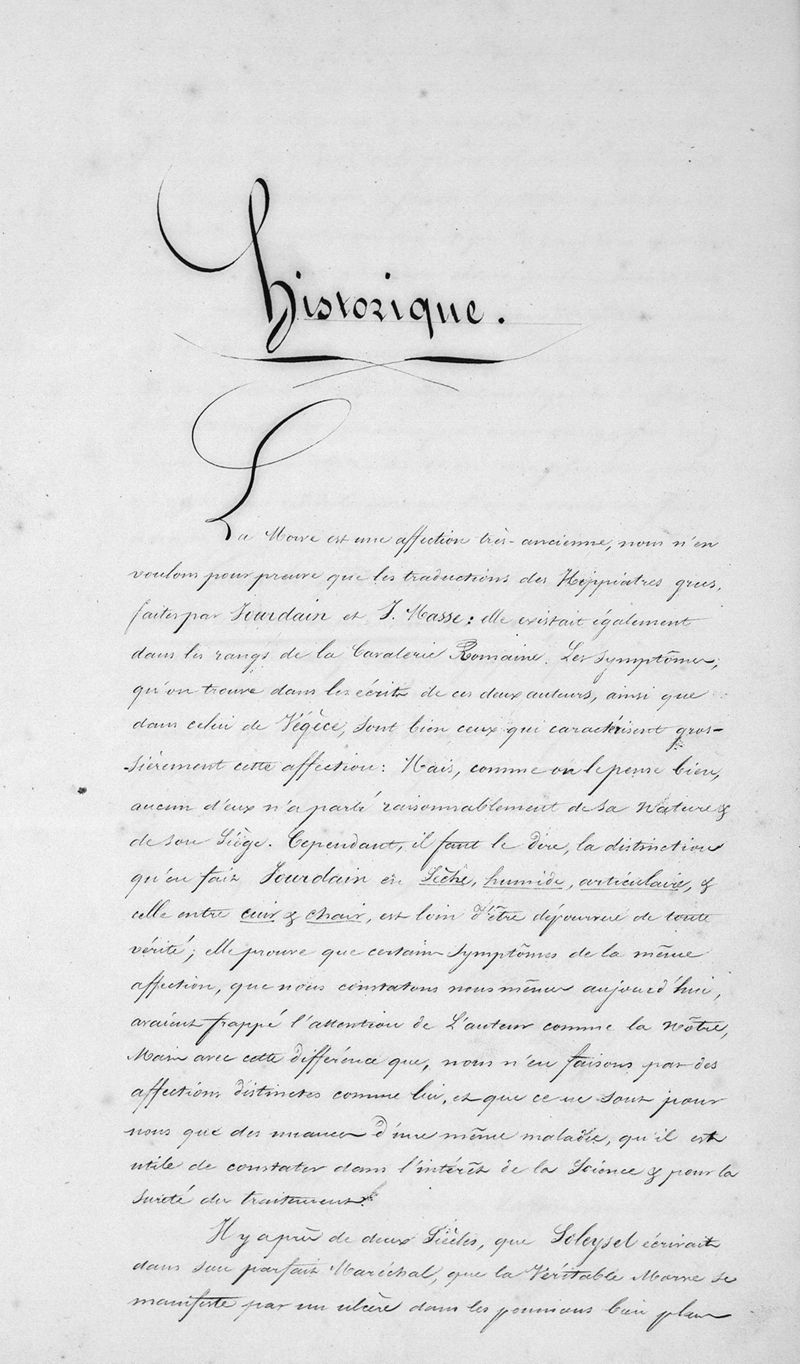 Historique.
La Morve est une affection très-ancienne, nous n'en
voulons pour preuve que les traductions des Hippiatres grecs,
faites par Jourdain et J. Masse: elle existait également
dans les rangs de la Cavalerie Romaine. Les symptômes,
qu'on trouve dans les écrits de ces deux auteurs, ainsi que
dans celui de Végèce, sont bien ceux qui caractérisent gros-
sièrement cette affection: Mais, comme on le pense bien,
aucun d'eux n'a parlé raisonnablement de sa Nature &
de son Siège. Cependant, il faut le dire, la distinction
qu'en fait Jourdain en Sèche, humide, articulaire, &
celle entre cuir & chair, est loin d'être dépourvue de toute
vérité; elle prouve que certains symptômes de la même
affection, que nous constatons nous mêmes aujourd'hui,
avaient frappé l'attention de L'auteur comme la nôtre,
Mais avec cette différence que, nous n'en faisons pas des
affections distinctes comme lui, et que ce ne sont pour
nous que des nuances d'une même maladie, qu'il est
utile de constater dans l'intérêt de la Science & pour la
sureté du traitement.
Il y a près de deux Siècles, que Soleysel écrivait
dans son parfait Maréchal, que la Véritable Morve se
manifeste par un ulcère dans les poumons bien plus